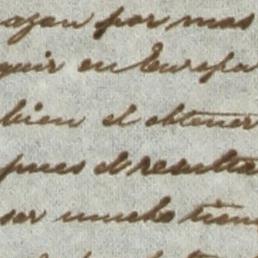 azon por mas
guir en Europa
bien el obtener
pues el resulta
ser mucho tiem